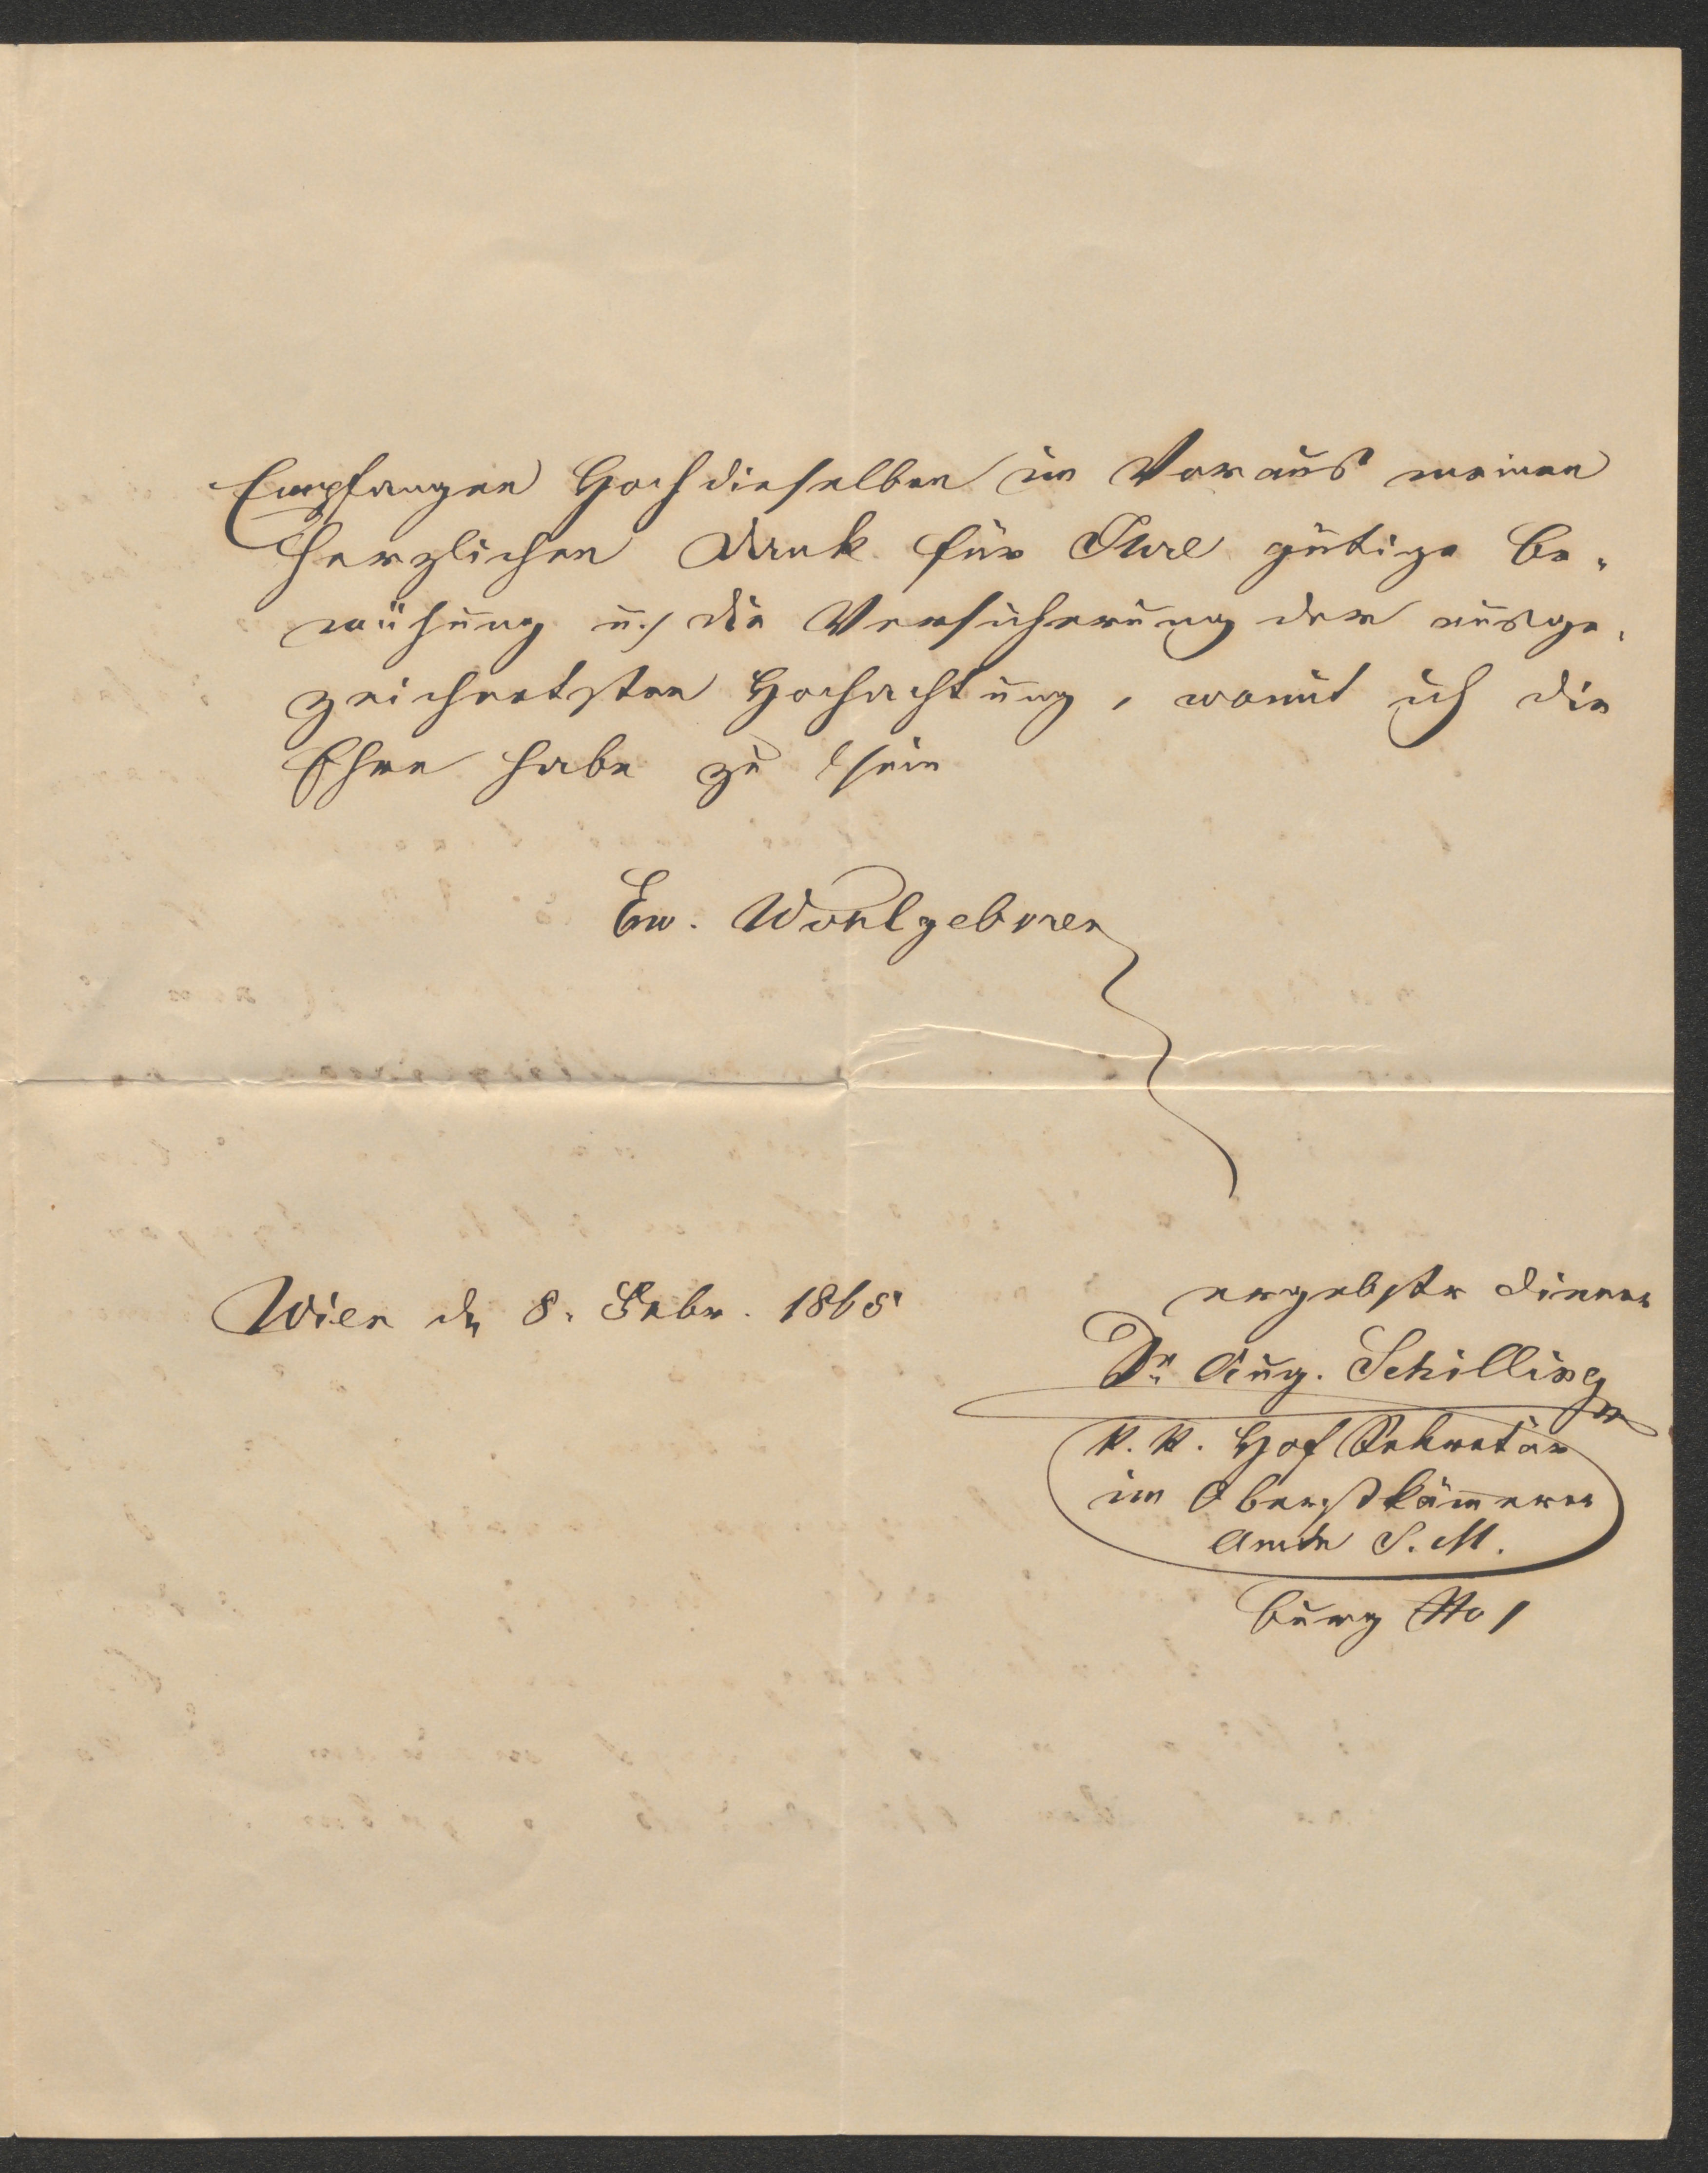 Empfangen Hochdieselben im Voraus meinen
herzlichen Dank für Ihre gütige Be-
mühung u. die Versicherung der ausge-
zeichnetsten Hochachtung, womit ich die
Ehre habe zu sein
Ew. Wohlgeboren
Wien d. 8. Febr. 1865
ergebster Diener
Dr. Aug. Schilling
K. K. Hof Sekretär
im Oberstkämmerer
Amte S. M.
Burg No 1